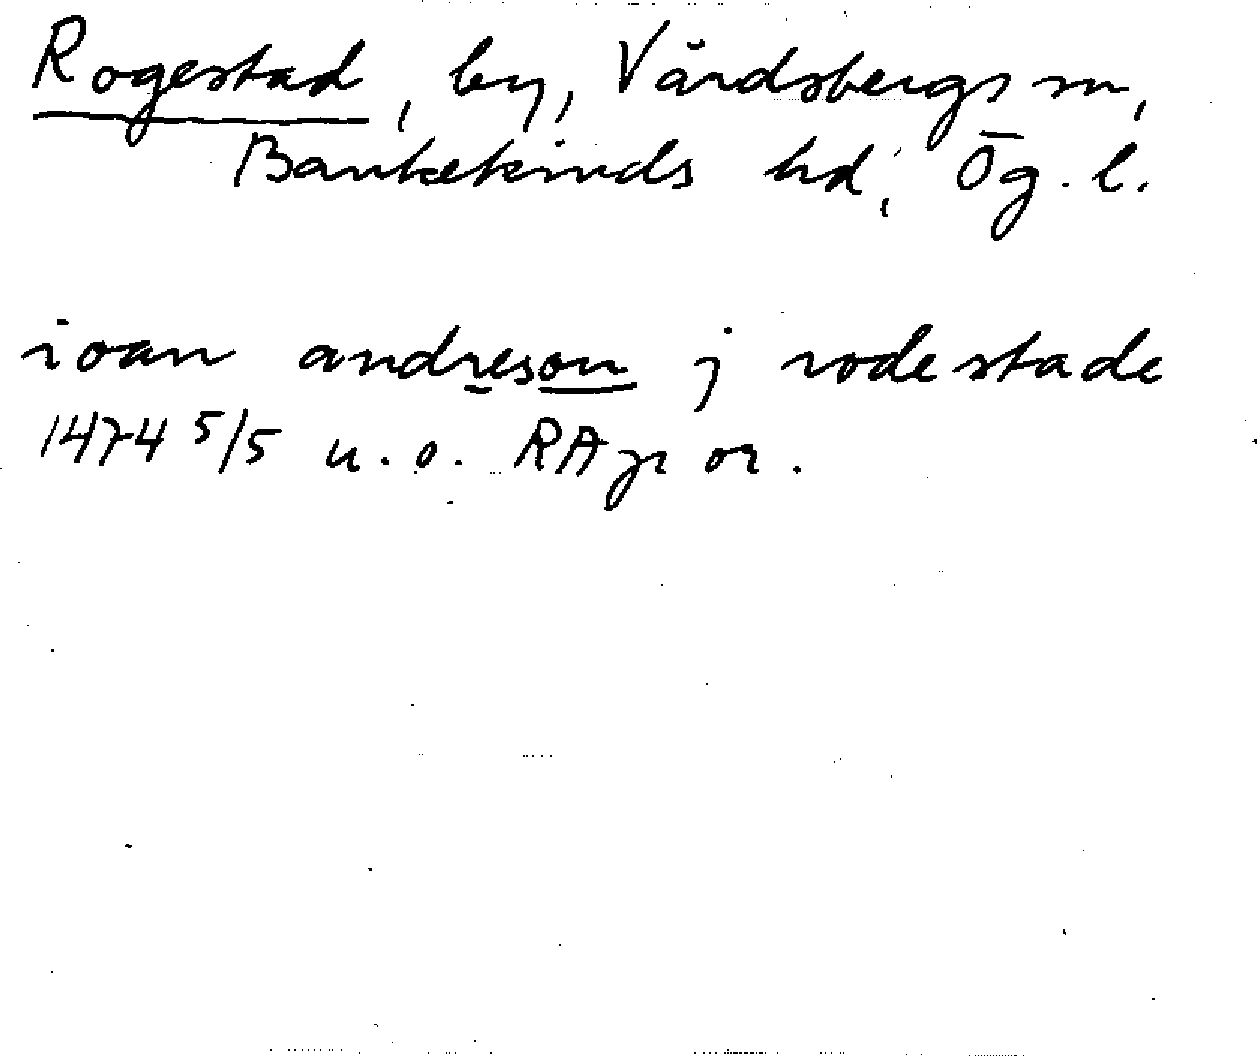 Rogestad, by, Vårdsbergs sn,
Bankekinds hd, Ög. l.
ioan andreson j rodestade
1474 5/5 u. o. RAp or.